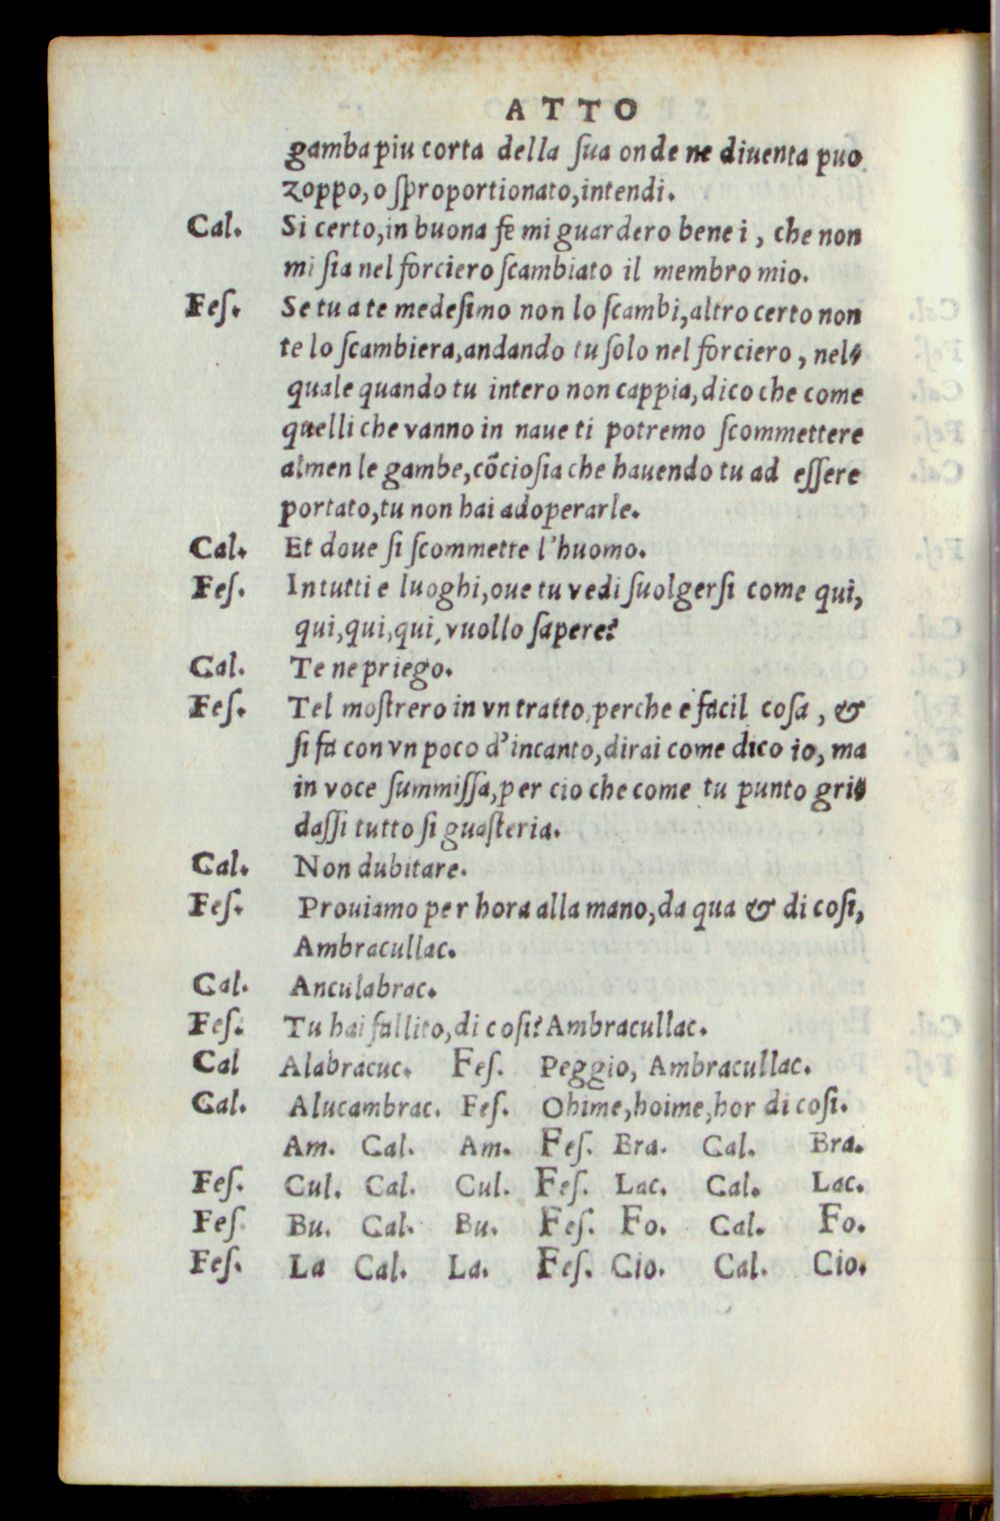 ATTO
gamba piu corta della ſua onde ne diuenta puo
zoppo, o ſproportionato, intendi.
Cal. Si certo, in buona fe mi guardero bene i, che non
mi ſia nel forciero ſcambiato il membro mio.
Feſ. Se tu a te medeſimo non lo ſcambi, altro certo non
te lo ſcambiera, andando tu ſolo nel forciero, nel
quale quando tu intero non cappia, dico che come
quelli che vanno in naue ti potremo ſcommettere
almen le gambe, cõcioſia che hauendo tu ad eſſere
portato, tu non hai adoperarle.
Cal. Et doue ſi ſcommette l'huomo.
Feſ. In tutti e luoghi, oue tu vedi ſuolgerſi come quì,
qui, qui, qui, vuollo ſapere?
Cal. Te ne priego.
Feſ. Tel moſtrero in vn tratto, perche e facil coſa, &
ſi fa con vn poco d'incanto, dirai come dico io, ma
in voce ſummiſſa, per cio che come tu punto gri
daſſi tutto ſi guaſteria.
Cal. Non dubitare.
Feſ. Prouiamo per hora alla mano, da qua & di coſi,
Ambracullac.
Cal. Anculabrac.
Feſ. Tu hai fallito, di coſi? Ambracullac.
Cal Alabracuc. Feſ. Peggio, Ambracullac.
Cal. Alucambrac. Feſ. Ohime, hoime, hor di coſi.
Am. Cal. Am. Feſ. Bra. Cal. Bra.
Feſ. Cul. Cal. Cul. Feſ. Lac. Cal. Lac.
Feſ. Bu. Cal. Bu. Feſ. Fo. Cal. Fo.
Feſ. La Cal. La. Feſ. Cio. Cal. Cio.